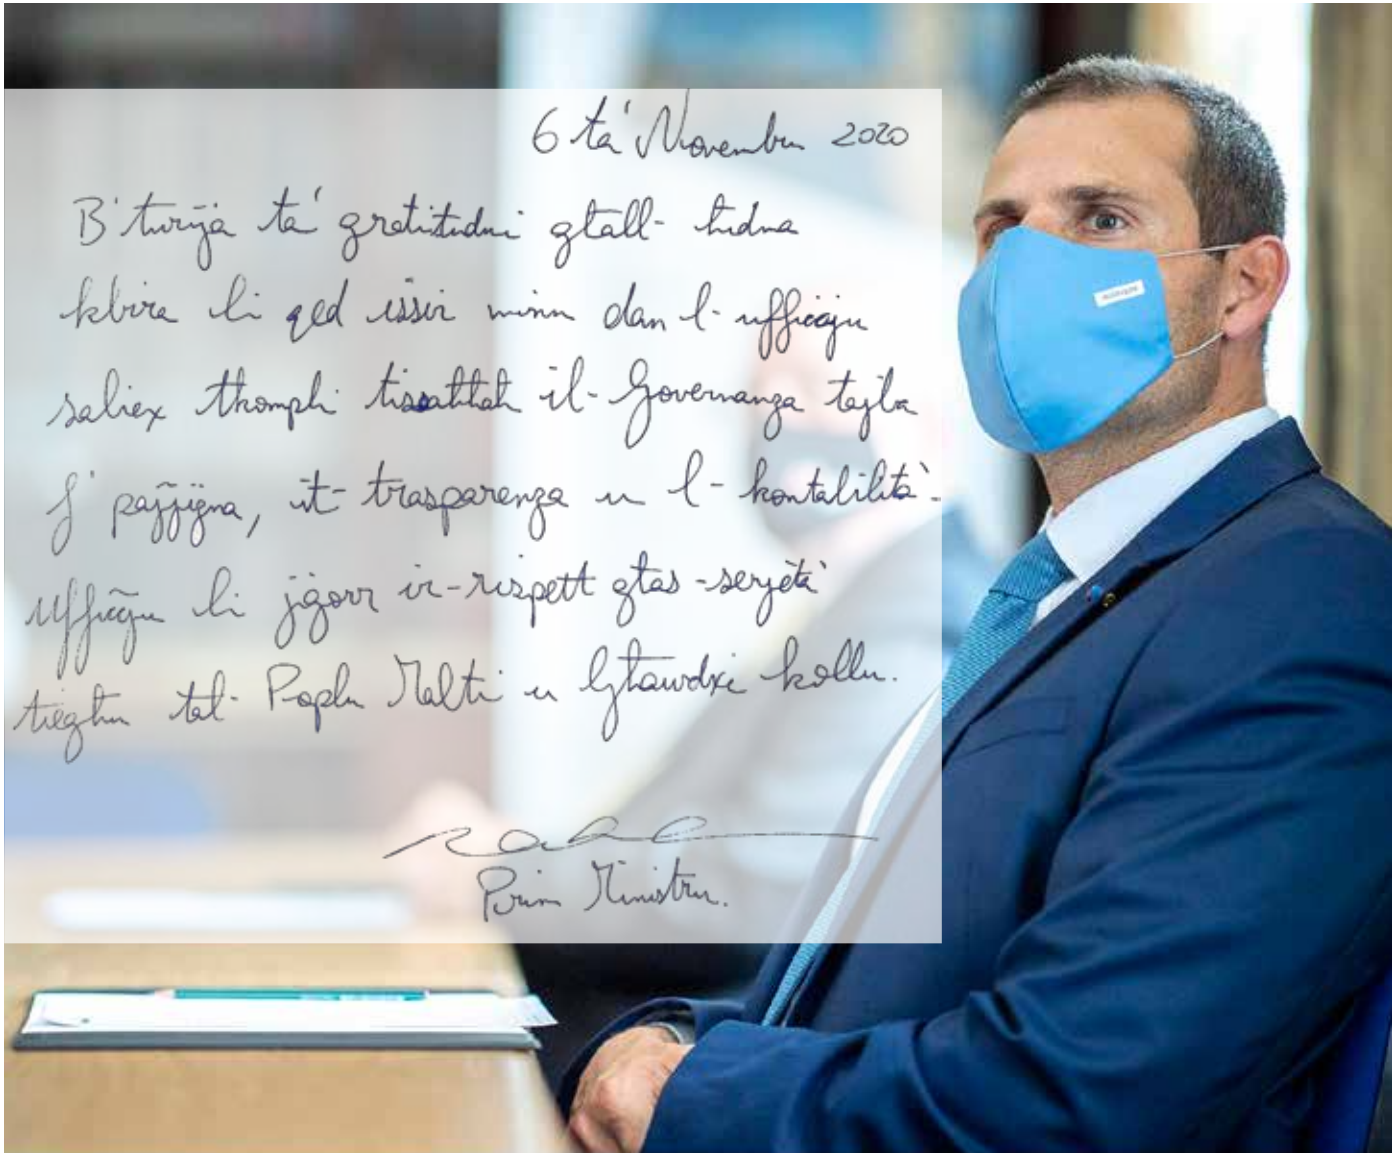 6 ta' Novembru 2020
B'turija ta' gratitudni għall-ħidma
kbira li qed issir minn dan l-uffiċċju
sabiex tkompli tissaħħaħ il-Governanza tajba
f'pajjiżna, it-trasparenza u l-kontabilità.
Uffiċċju li jġorr ir-rispett għas-serjetà
tiegħu tal-Poplu Malti u Għawdxi kollu.
Prim Ministru.